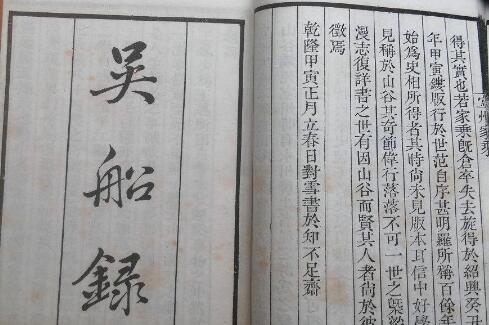 宜州家乘
得其實也若家乘旣倉卒失去旋得於紹興癸丑
年甲寅鏤版行於世范自序甚明羅所稱百餘年
始爲史相所得者其時尚未見版本耳信中好學
見稱於山谷其奇節偉行落落不可一世之槩梁
漫志復詳書之世有因山谷而賢其人者尚於彼
徵焉
乾隆甲寅正月立春日對雪書於知不足齋
吳船錄